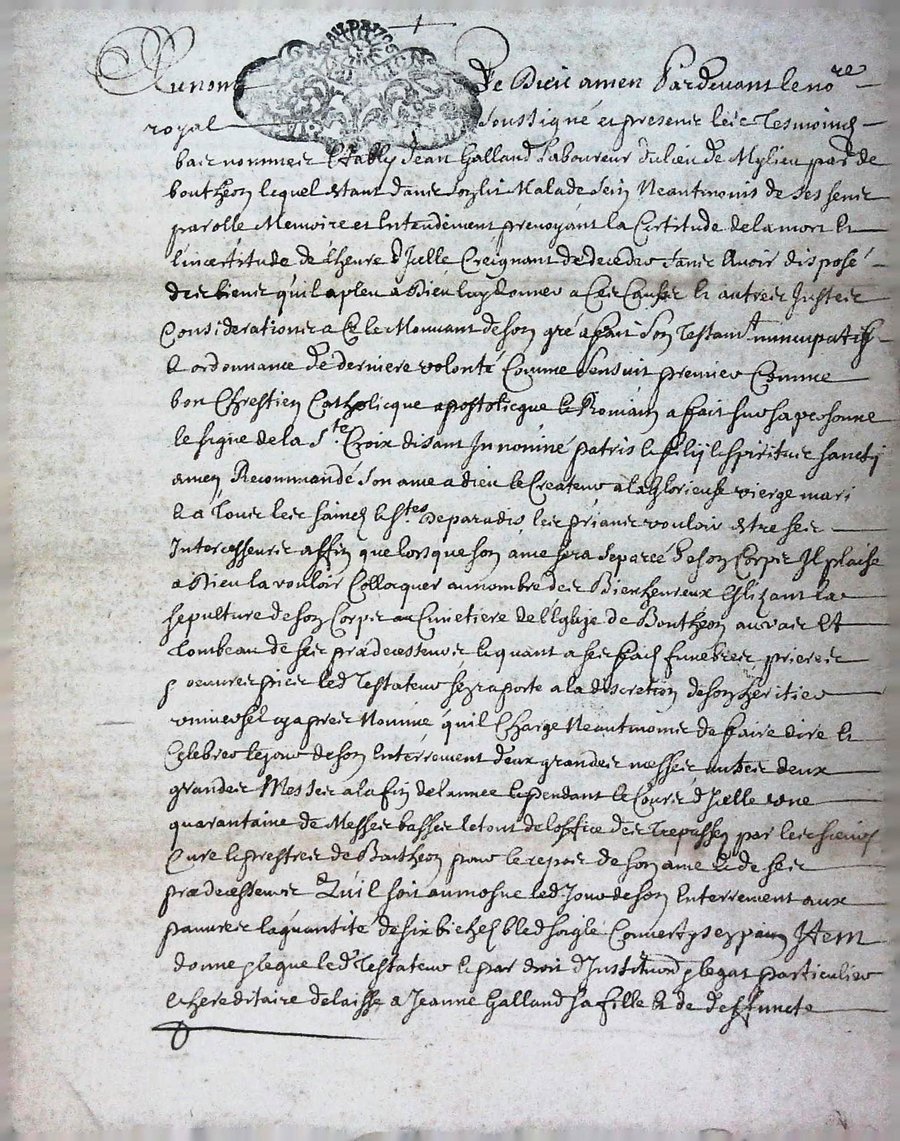 Au nom de Dieu amen Pardevant le no.re
royal soussigné et presents les Tesmoins
bas nommes Estably Jean Galland Laboureur du lieu de Mylieu par. de
boutheon lequel estant dans son lit Malade sein Neantmoins de ses sens
parolle Memoire et Entendement prevoyant la Certitude de la mort et
l'incertitude de l'heure d'Icelle Creignant de deceder sans Avoir disposé
des biens qu'il a pleu a Dieu luy donner a Ces Causes et autres Justes
Considerations a Ce le Mouvant de son gré a fait son Testam.t nuncupatif
et ordonnance de derniere volonté Comme s'ensuit premier Comme
bon Chrestien Catholicque apostolicque et Romain a fait sur sa personne
le signe de la S.te Croix disant In nomine patris et filij et spiritus sancti
amen Recommandé son ame a dieu le Createur a la glorieuse vierge mari
et a Tous les saincts et S.tes de paradis les priant vouloir estre ses
Intercesseurs affin que lors que son ame sera separée de son Corps Il plaise
a Dieu la vouloir Collocquer au nombre des Bienheureux Eslizant la
sepulture de son Corps au Cimetiere de l'Eglize de Boutheon au vas et
Tombeau de ses prædecesseurs et quant a ses frais funebres prieres
oeuvres pies led. Testateur s'en raporte a la discretion de son heritier
universel cy apres Nommé qu'il Charge Neantmoins de faire dire et
Celebrer le jour de son Enterrement deux grandes messes autres deux
grandes Messes a la fin de l'année et pendant le Cours d'Icelle une
quarantaine de Messes basses le tout de l'office des Trepassez par les sieurs
Curé et prestres de Boutheon pour le repos de son ame et de ses
prædecesseurs Qu'il soit aumosne led. Jour de son Enterrement aux
pauvres la quantité de six bichets bled soigle Convertys en pain Item
donne legue led. Testateur et par droit d'Institution legat particulier
et hereditaire delaisse a Jeanne Galland sa fille et de deffuncte